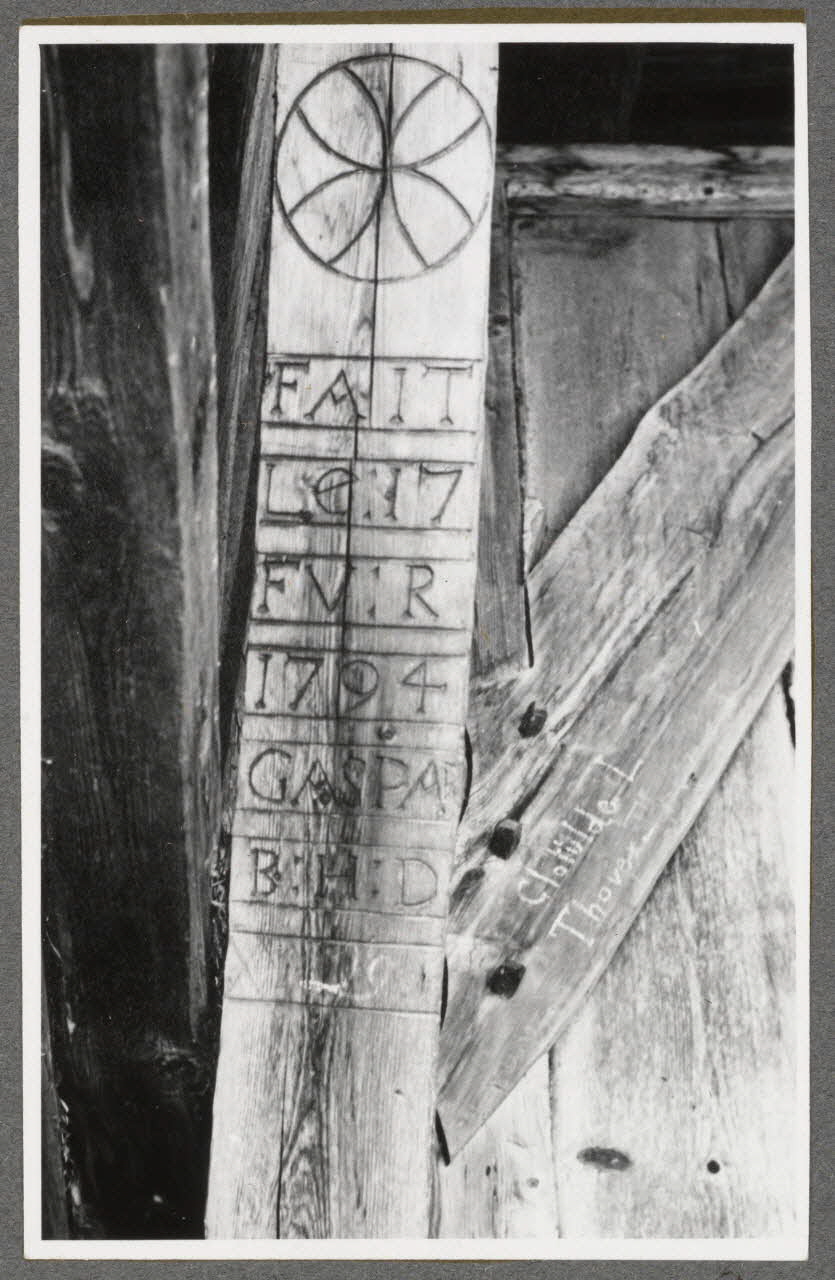 FA:IT
Le:17
FV:R
1794
GASPAR
B:H:D
Clotilde L
Thover